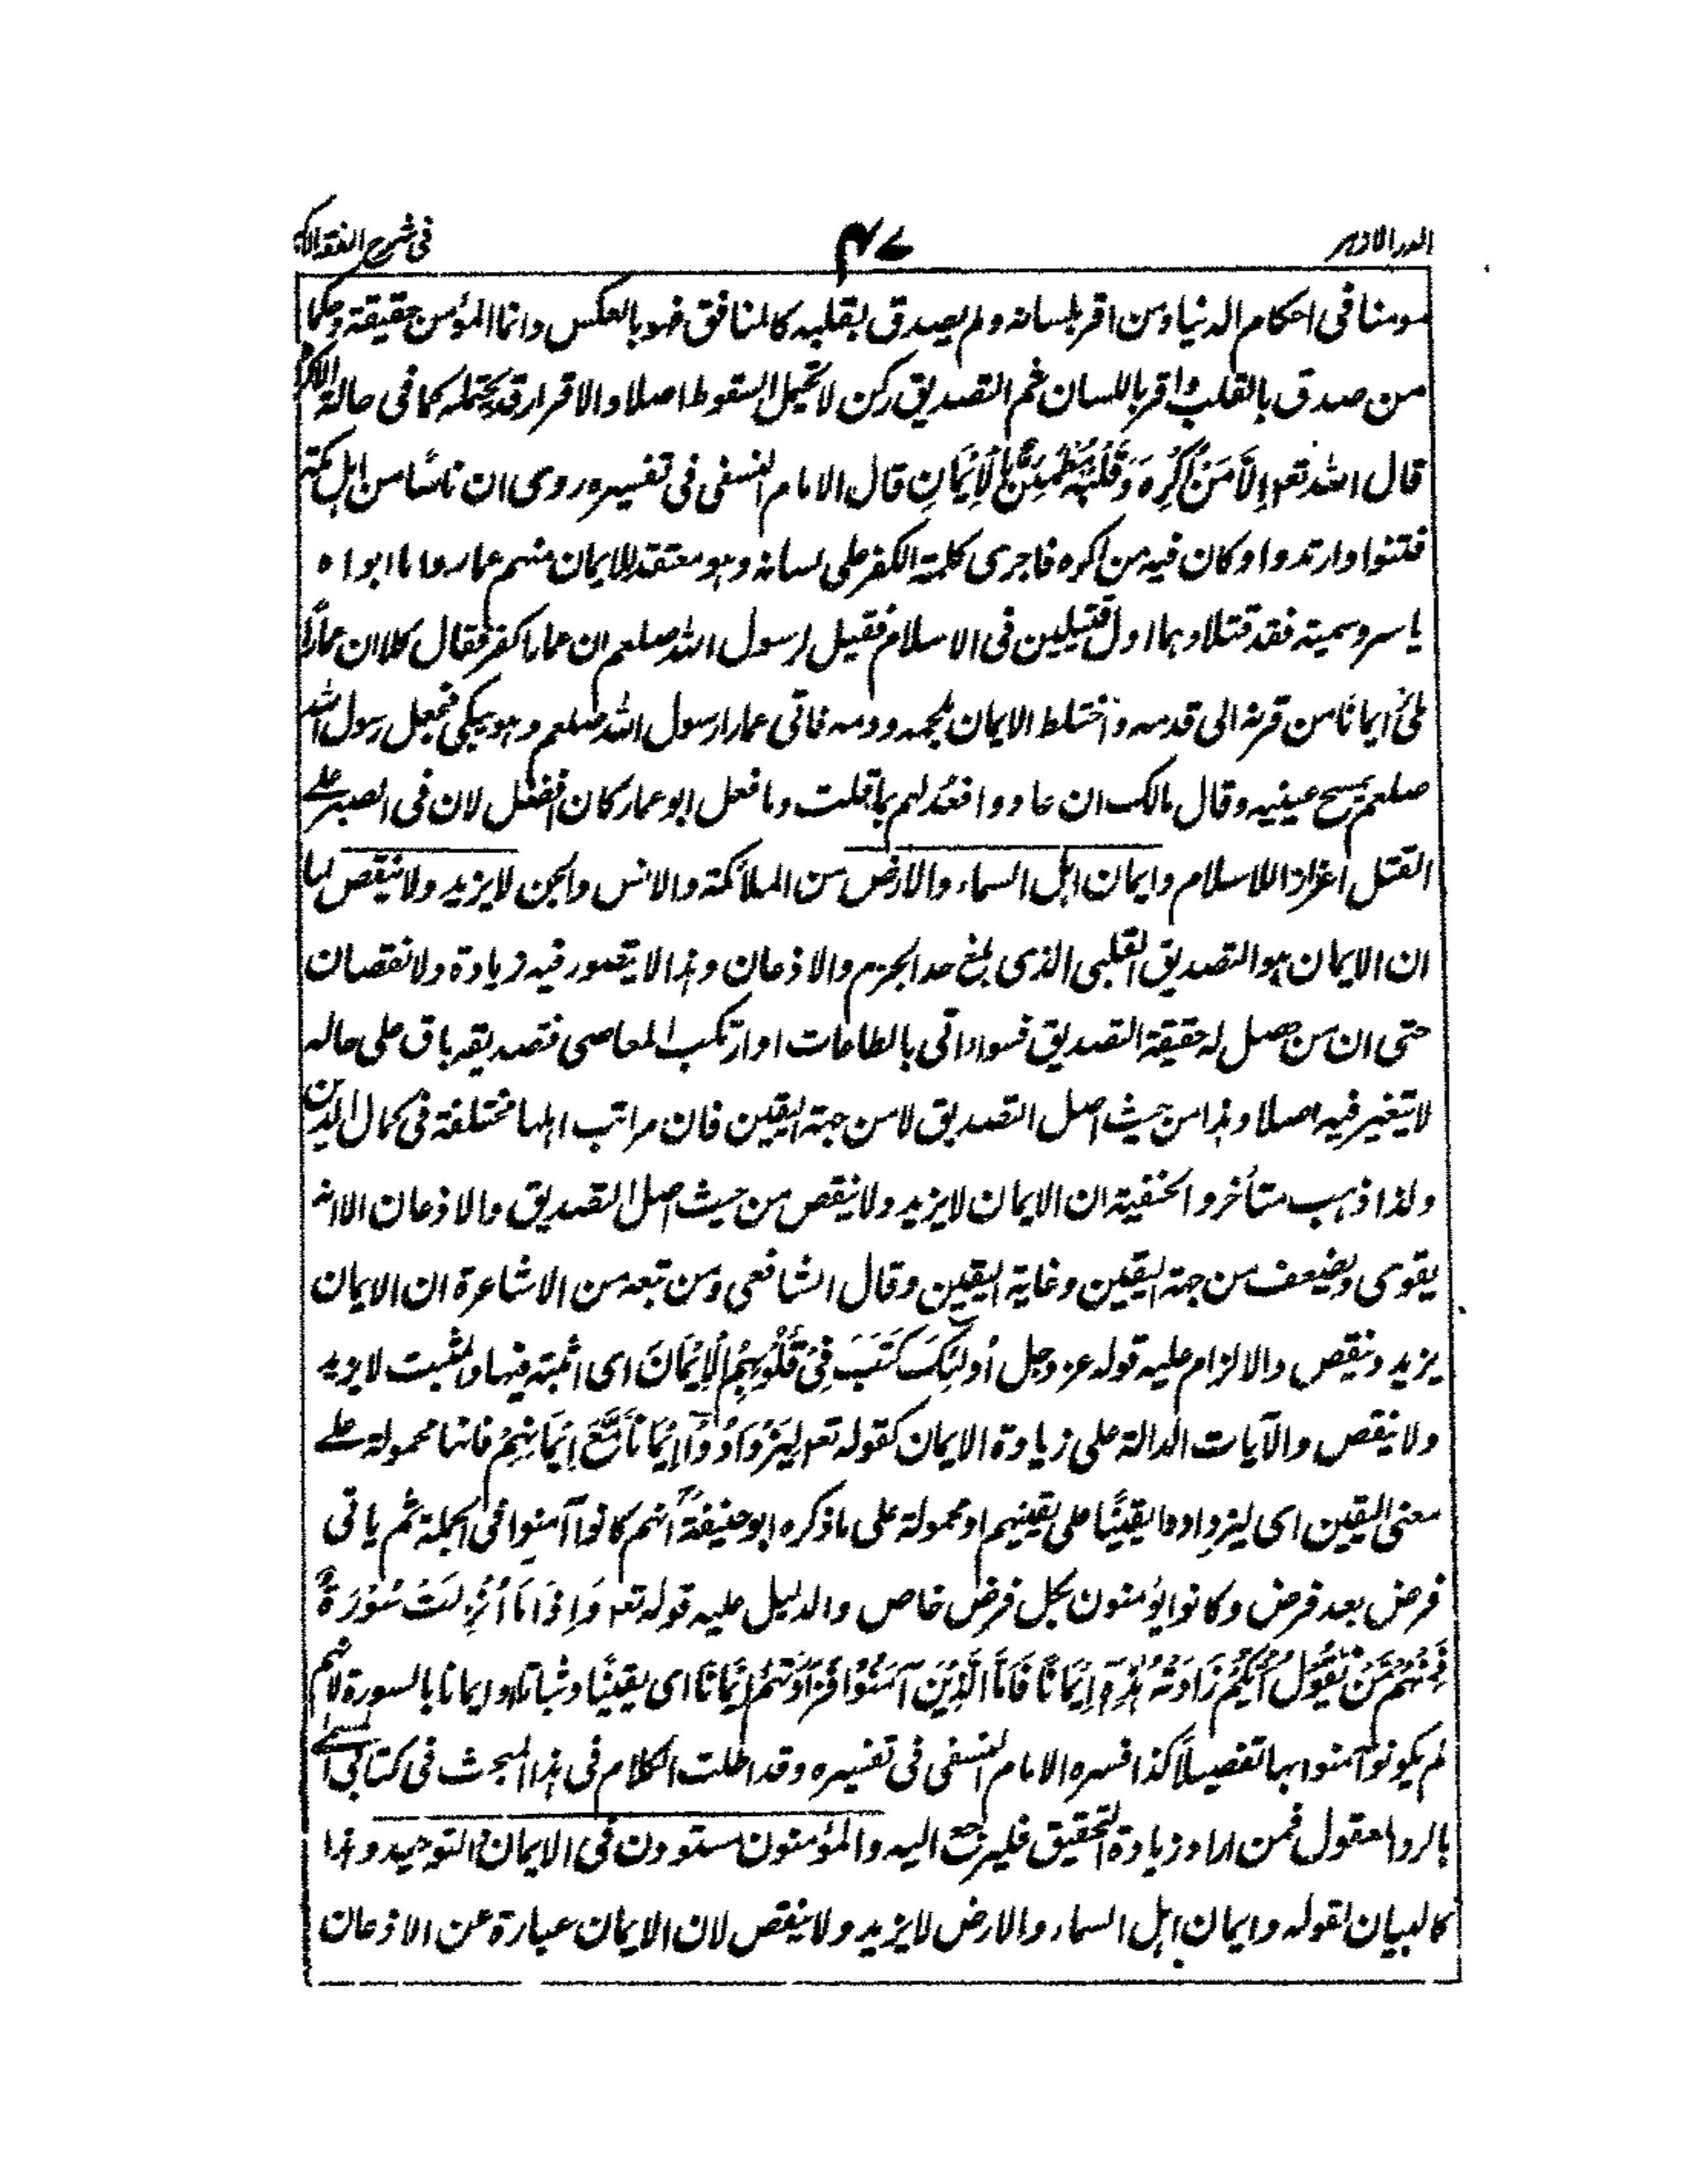 الدر الازہر
۴۷
فی شرح الفقہ الاکبر
مومنا فی احکام الدنیا ومن اقر بلسانہ ولم یصدق بقلبہ کالمنافق فہو بالعکس وانما المؤمن حقیقۃ وحکما
من صدق بالقلب واقر باللسان ثم التصدیق رکن لا یحتمل السقوط اصلا والاقرار قد یحتملہ کما فی حالۃ الاکراہ
قال اللہ تعہ اِلَّا مَنْ اُكْرِهَ وَقَلْبُهٗ مُطْمَئِنٌّۢ بِالْاِيْمَانِ قال الامام النسفی فی تفسیرہ روی ان ناسًا من اہل مکۃ
فتنوا وارتدوا وکان فیہ من اکرہ فاجری کلمۃ الکفر علی لسانہ وہو معتقد للایمان منہم عمار واما ابواہ
یاسر وسمیۃ فقد قتلا وہما اول قتیلین فی الاسلام فقیل لرسول اللہ صلعم ان عمارا کفر فقال کلا ان عمارًا
ملئ ایمانًا من قرنہ الی قدمہ واختلط الایمان بلحمہ ودمہ فاتی عمار رسول اللہ صلعم وہو یبکی فجعل رسول اللہ
صلعم یمسح عینیہ وقال مالک ان عادوا فعُد لہم بما قلت وما فعل ابو عمار کان افضل لان فی الصبر علی
القتل اعزازا للاسلام وایمان اہل السماء والارض من الملائکۃ والانس والجن لا یزید ولا ینقص لما
ان الایمان ہو التصدیق القلبی الذی بلغ حد الجزم والاذعان وہذا لا یتصور فیہ زیادۃ ولا نقصان
حتی ان من حصل لہ حقیقۃ التصدیق فسواء اتی بالطاعات او ارتکب المعاصی فتصدیقہ باق علی حالہ
لا یتغیر فیہ اصلا وہذا من حیث اصل التصدیق لا من جہۃ الیقین فان مراتب اہلہا مختلفۃ فی کمال الدین
ولذا ذہب متأخروا الحنفیۃ ان الایمان لا یزید ولا ینقص من حیث اصل التصدیق والاذعان الا انہ
یقوی ویضعف من جہۃ الیقین وغایۃ الیقین وقال الشافعی ومن تبعہ من الاشاعرۃ ان الایمان
یزید وینقص والالزام علیہ قولہ عز وجل اُولٰٓئِكَ كَتَبَ فِیْ قُلُوْبِهِمُ الْاِيْمَانَ ای اثبتہ فیہا والمثبت لا یزید
ولا ینقص والآیات الدالۃ علی زیادۃ الایمان کقولہ تعہ لِيَزْدَادُوْٓا اِيْمَانًا مَّعَ اِيْمَانِهِمْ فانہا محمولۃ علی
معنی الیقین ای لیزدادوا یقینًا علی یقینہم او محمولۃ علی ما ذکرہ ابو حنیفۃؒ انہم کانوا آمنوا فی الجملۃ ثم یاتی
فرض بعد فرض وکانوا یؤمنون بکل فرض خاص والدلیل علیہ قولہ تعہ وَاِذَا مَآ اُنْزِلَتْ سُوْرَةٌ
فَمِنْهُمْ مَّنْ يَّقُوْلُ اَيُّكُمْ زَادَتْهُ هٰذِهٖٓ اِيْمَانًا فَاَمَّا الَّذِيْنَ آمَنُوْا فَزَادَتْهُمْ اِيْمَانًا ای یقینًا وثباتا او ایمانا بالسورۃ لانہم
لم یکونوا آمنوا بہا تفصیلًا کذا فسرہ الامام النسفی فی تفسیرہ وقد اطلت الکلام فی ہذا المبحث فی کتابی المسمی
بالرد المعقول فمن اراد زیادۃ التحقیق فلیرجع الیہ والمؤمنون مستوون فی الایمان والتوحید وہذا
کالبیان لقولہ وایمان اہل السماء والارض لا یزید ولا ینقص لان الایمان عبارۃ عن الاذعان